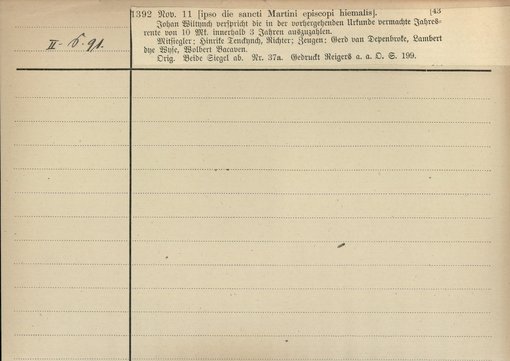 1392 Nov. 11 [ipso die sancti Martini episcopi hiemalis]. [43
Johan Wiltynch verspricht die in der vorhergehenden Urkunde vermachte Jahres-
rente von 10 Mk. innerhalb 3 Jahren auszuzahlen.
Mitsiegler: Hinrike Tenckynch, Richter; Zeugen: Gerd van Depenbroke, Lambert
dye Wyse, Wolbert Bacaven.
Orig. Beide Siegel ab. Nr. 37a. Gedruckt Reigers a. a. O. S. 199.
II - 5. 91.